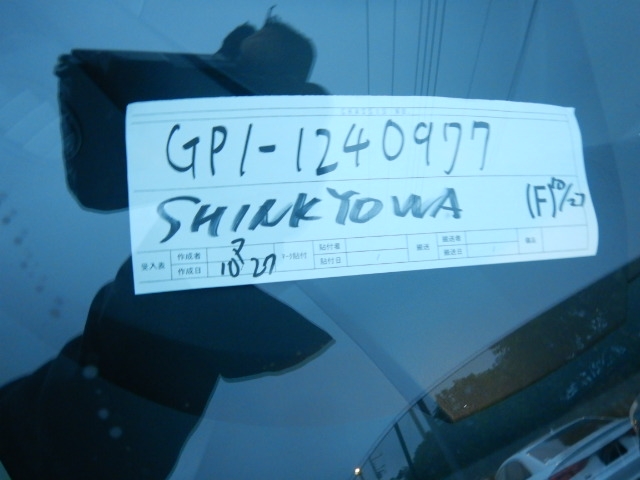 GP1-1240977
SHINKYOWA (F) 10/27
受入表 作成者 ク 貼付者 搬送 搬送者 備品
作成日 10 27 貼付日 / 搬送日 /